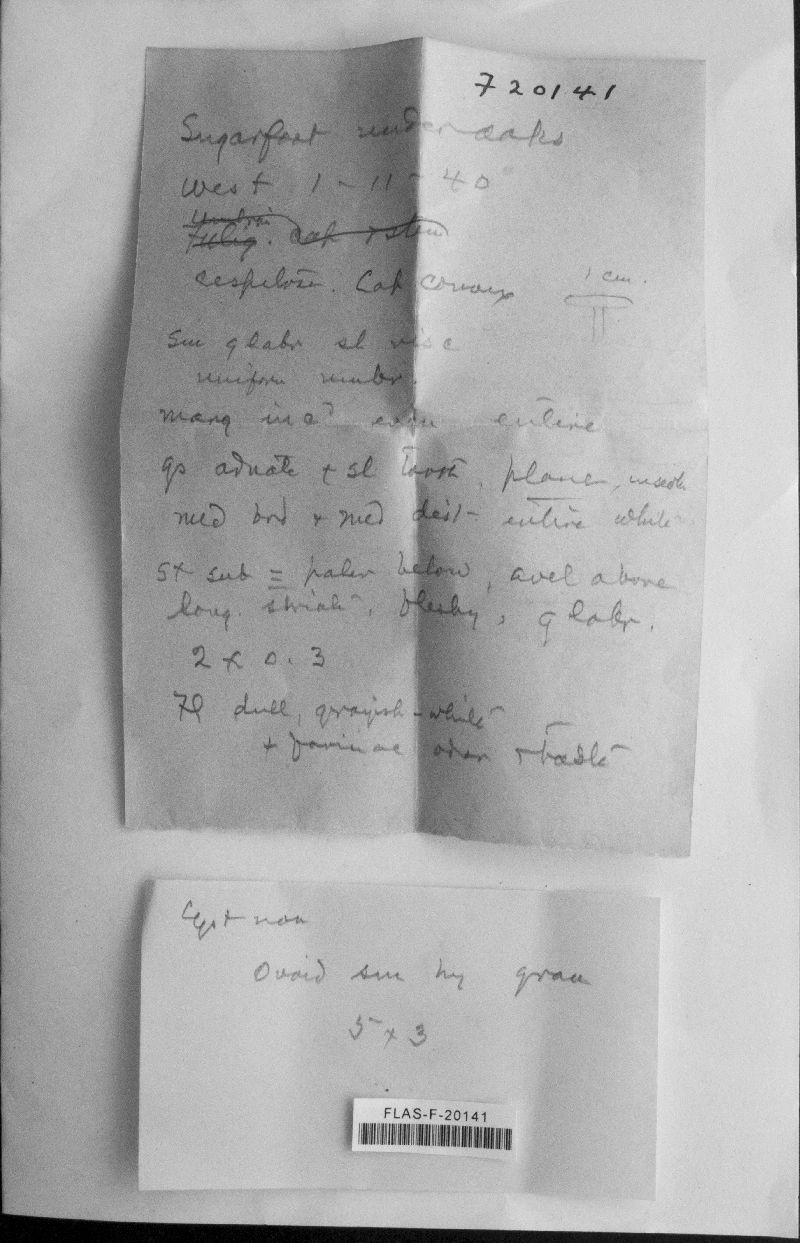 F20141
Sugarfoot under oaks
West 1-11-40
Umbrin
Fulig. Cap + stem
cespitose. Cap convex
1 cm.
Sm glabr sl visc
uniform umbr.
marg inc even entire
gs adnate + sl tooth, plane,
med brd + med dist - entire white
st sub = paler below, avel above
long. striate, fleshy, glabr.
2 x 0.3
Fl dull, grayish-white
+ farinac odor + taste
Cyst non
Ovoid sm hy gran
5 x 3
FLAS-F-20141